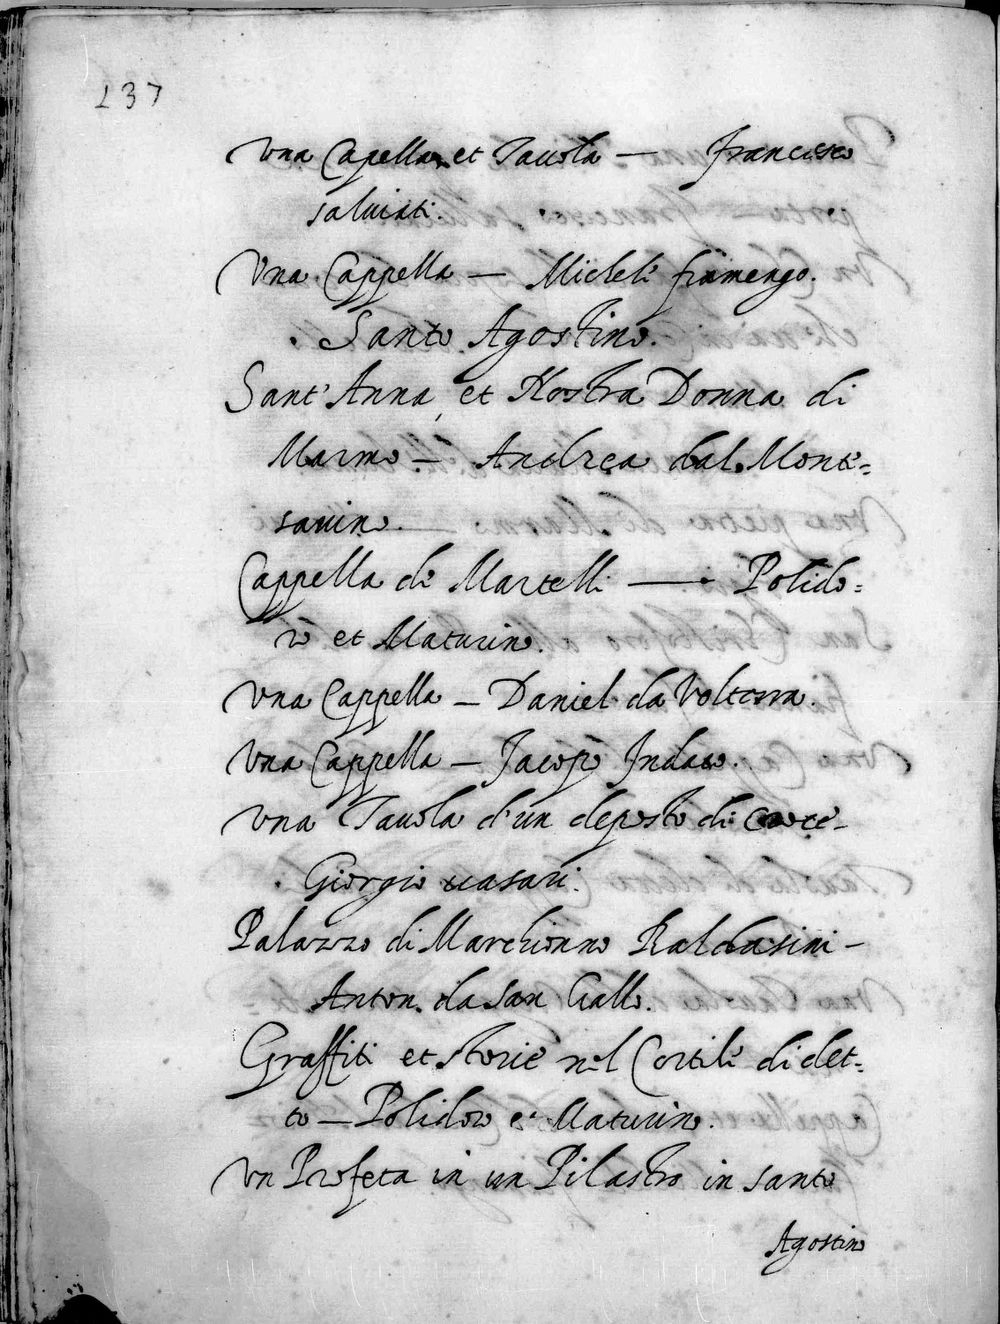 237
Vna Capella et Tauola — francesco
saluiati.
Vna Cappella — Michele fiamengo.
Santo Agostino.
Sant' Anna et Nostra Donna di
Marmo — Andrea dal Monte=
sauino.
Cappella de Martelli — Polido=
ro et Maturino.
Vna Cappella — Daniel da Volterra.
Vna Cappella — Jacopo Indaco.
Vna Tauola d'un deposto di croce-
Giorgio uasari.
Palazzo di Marchionno Baldasini —
Anton. da San Gallo.
Graffiti et storie nel Cortile di det=
to — Polidoro e Maturino.
Vn Profeta in un Pilastro in santo
Agostino